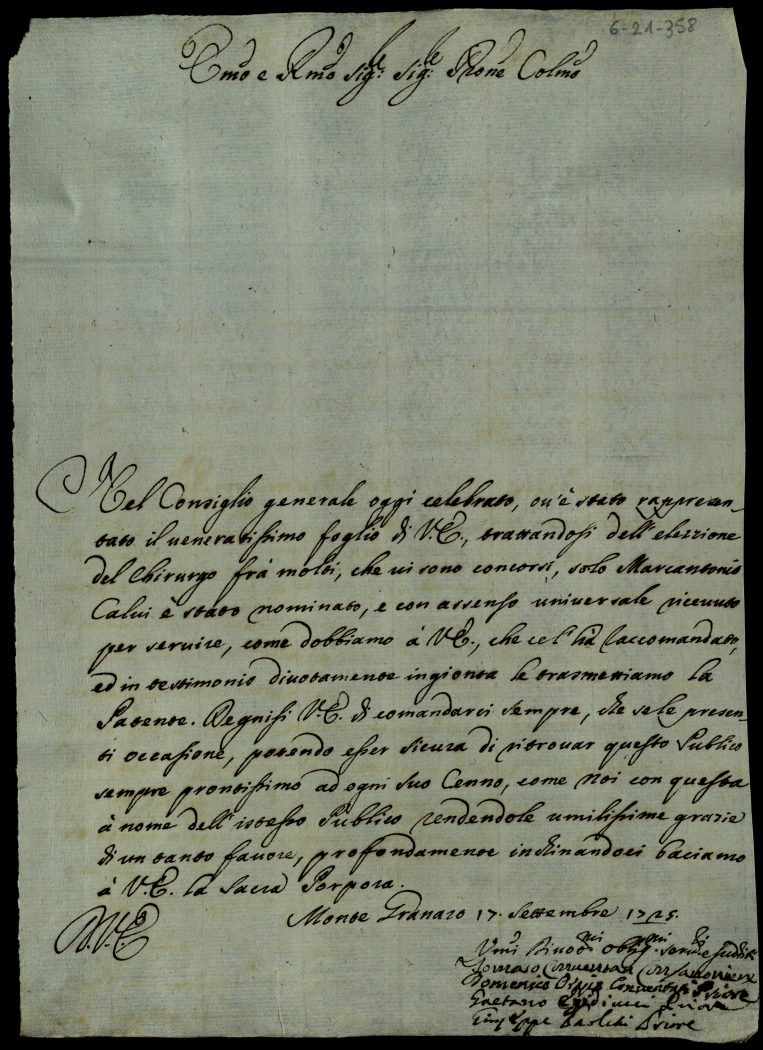 6-21-358
Emõ e Rmõ Sigre Sigre Pñone Colmõ
Nel Consiglio generale oggi celebrato, ov'è stato rappresen_
tato il veneratissimo foglio di V.E., trattandosi dell'elezzione
del Chirurgo frà molti, che vi sono concorsi, solo Marcantonio
Calvi è stato nominato, e con assenso universale ricevuto
per servire, come dobbiamo à V.E., che ce l'hà raccomandato,
ed in testimonio divotamente ingionta le trasmettiamo la
Patente. Degnisi V.E. di comandarci sempre, che se le presen_
ti occasione, potendo esser sicura di ritrovar questo Publico
sempre prontissimo ad ogni suo Cenno, come noi con questa
à nome dell'istesso Publico rendendole umilissime grazie
di un tanto favore, profondamente inchinandoci baciamo
à V.E. la Sacra Porpora.
D.V.E.
Monte Granaro 17. Settembre 1725.
Umi Divotmi Obligmi
Domenico Priore
Gaetano Priore
Priore